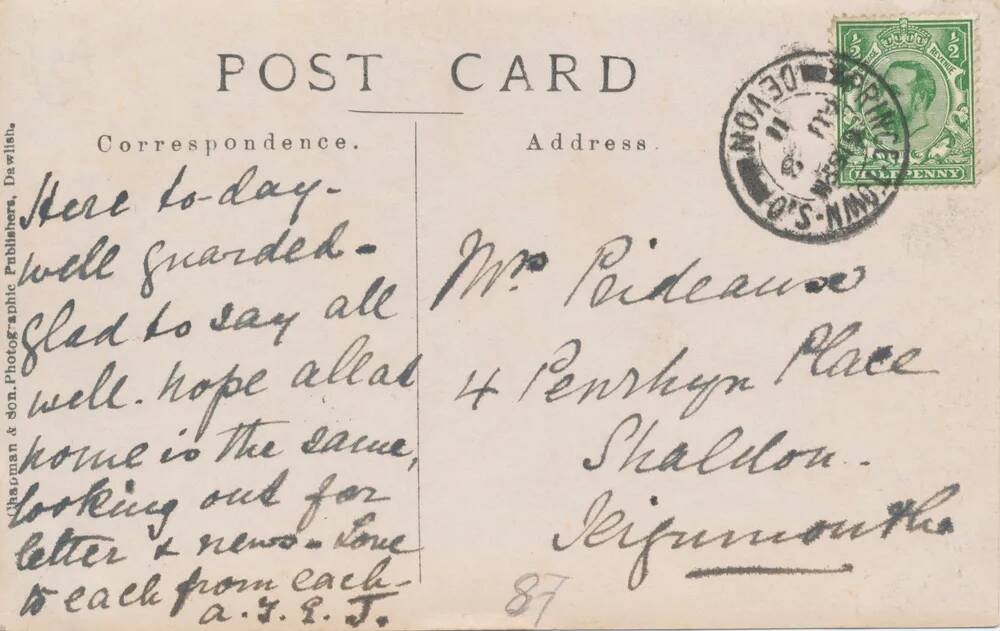 POST CARD
Correspondence.
Address.
Chapman & Son. Photographic Publishers, Dawlish.
Here to-day-
well guarded-
Glad to say all
well. hope all at
home is the same,
looking out for
letter & news- Love
to each from each-
a. J. E. J.
Mrs Prideaux
4 Penrhyn Place
Shaldon-
Teignmouth
87
PRINCETOWN-S.O
DEVON
11
½
½
REVENUE
HALFPENNY